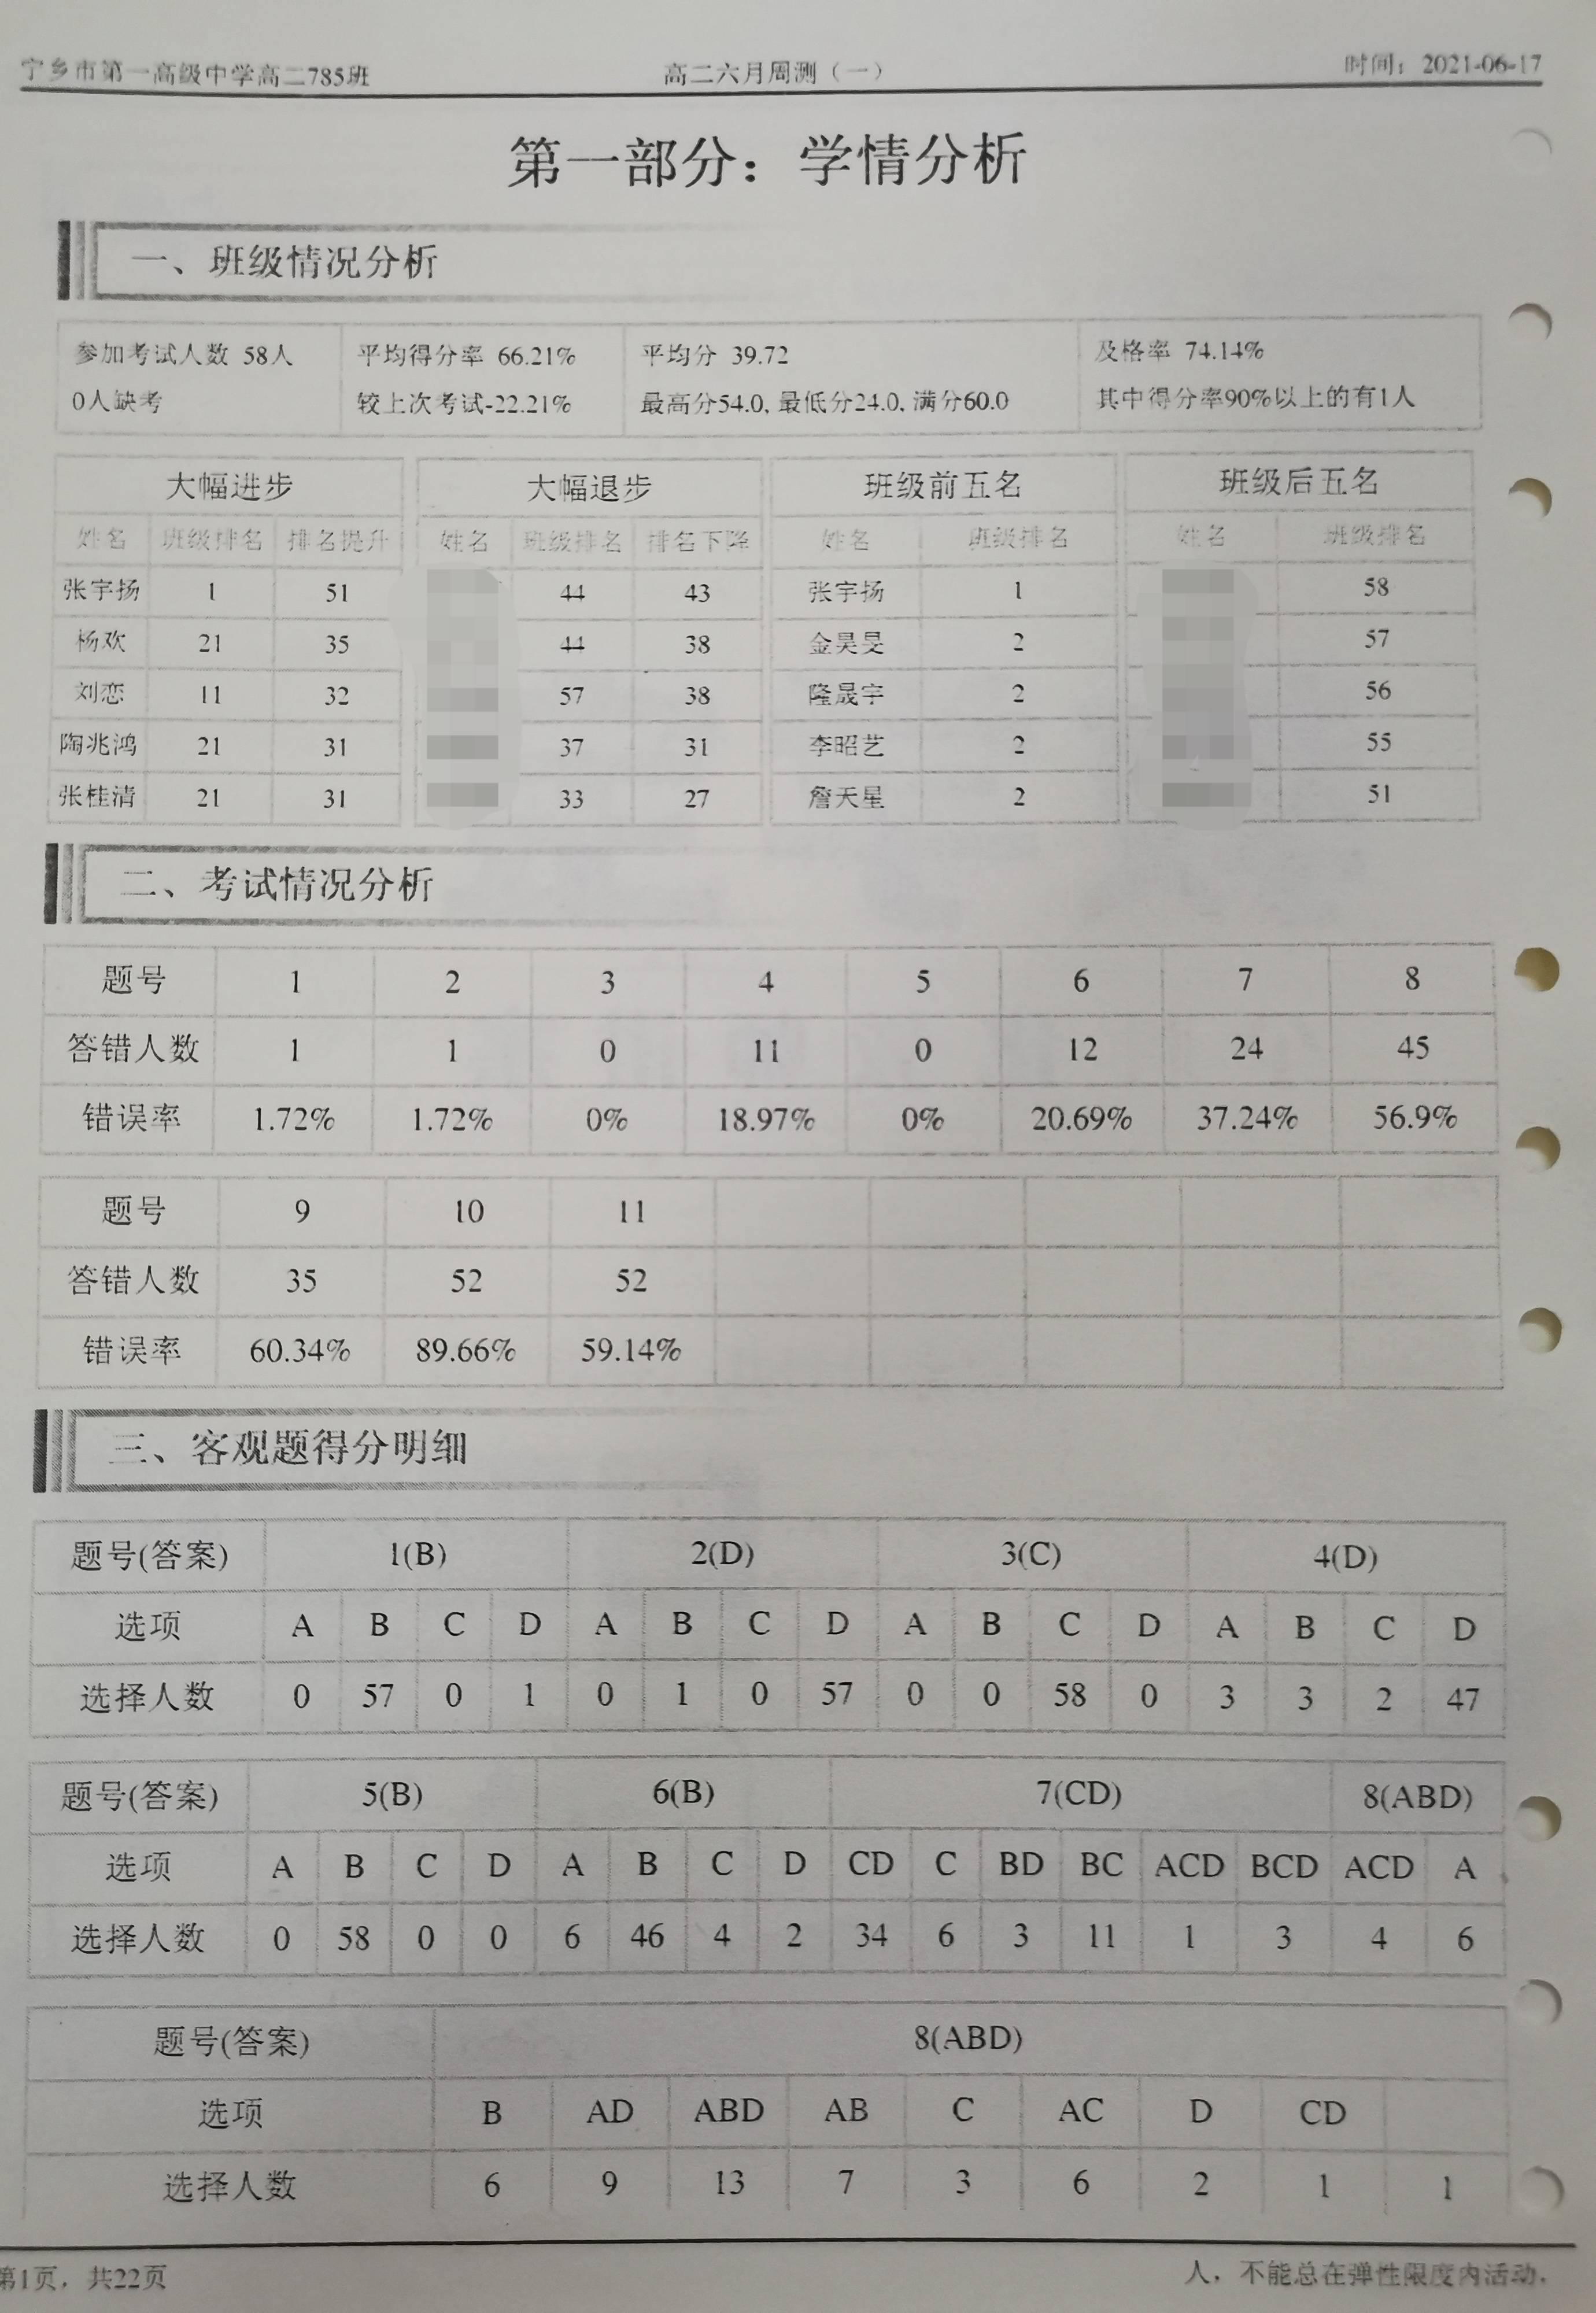 宁乡市第一高级中学高二785班 高二六月周测（一） 时间：2021-06-17
第一部分：学情分析
一、班级情况分析
参加考试人数 58人 平均得分率 66.21% 平均分 39.72 及格率 74.14%
0人缺考 较上次考试-22.21% 最高分54.0, 最低分24.0, 满分60.0 其中得分率90%以上的有1人
大幅进步 大幅退步 班级前五名 班级后五名
姓名 班级排名 排名提升 姓名 班级排名 排名下降 姓名 班级排名 姓名 班级排名
张宇扬 1 51 44 43 张宇扬 1 58
杨欢 21 35 44 38 金昊旻 2 57
刘恋 11 32 57 38 隆晟宇 2 56
陶兆鸿 21 31 37 31 李昭艺 2 55
张桂清 21 31 33 27 詹天星 2 51
二、考试情况分析
题号 1 2 3 4 5 6 7 8
答错人数 1 1 0 11 0 12 24 45
错误率 1.72% 1.72% 0% 18.97% 0% 20.69% 37.24% 56.9%
题号 9 10 11
答错人数 35 52 52
错误率 60.34% 89.66% 59.14%
三、客观题得分明细
题号(答案) 1(B) 2(D) 3(C) 4(D)
选项 A B C D A B C D A B C D A B C D
选择人数 0 57 0 1 0 1 0 57 0 0 58 0 3 3 2 47
题号(答案) 5(B) 6(B) 7(CD) 8(ABD)
选项 A B C D A B C D CD C BD BC ACD BCD ACD A
选择人数 0 58 0 0 6 46 4 2 34 6 3 11 1 3 4 6
题号(答案) 8(ABD)
选项 B AD ABD AB C AC D CD
选择人数 6 9 13 7 3 6 2 1 1
第1页，共22页 人，不能总在弹性限度内活动.